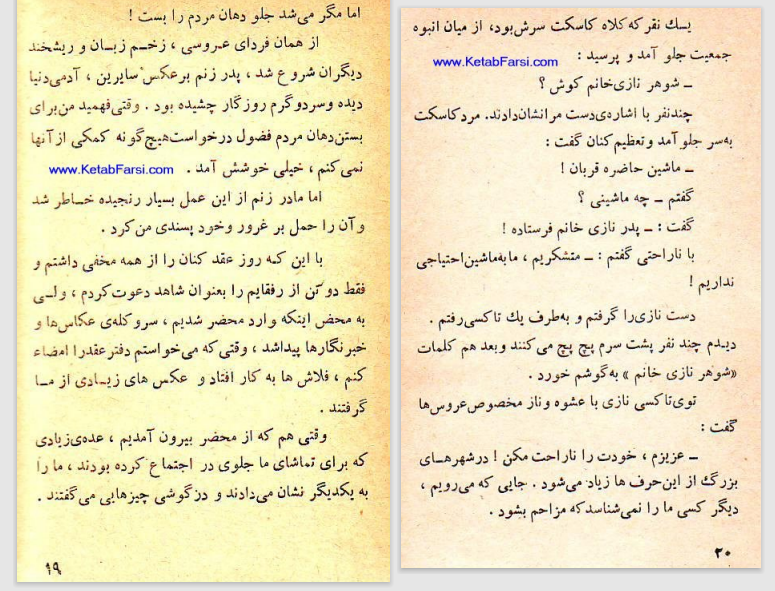 اما مگر می‌شد جلو دهان مردم را بست !
از همان فردای عروسی ، زخم زبان و ریشخند
دیگران شروع شد ، پدر زنم برعکس سایرین ، آدمی‌دنیا
دیده وسردوگرم روزگار چشیده بود . وقتی‌فهمید من‌برای
بستن‌دهان مردم فضول درخواست‌هیچ‌گونه کمکی ازآنها
نمی‌کنم ، خیلی خوشش آمد . www.KetabFarsi.com
اما مادر زنم از این عمل بسیار رنجیده خاطر شد
و آن را حمل بر غرور وخود پسندی من کرد .
با این که روز عقد کنان را از همه مخفی داشتم و
فقط دو تن از رفقایم را بعنوان شاهد دعوت کردم ، ولی
به محض اینکه وارد محضر شدیم ، سروکله‌ی عکاس‌ها و
خبرنگارها پیداشد ، وقتی‌که می‌خواستم دفترعقدرا امضاء
کنم ، فلاش ها به کار افتاد و عکس های زیادی از ما
گرفتند .
وقتی هم که از محضر بیرون آمدیم ، عده‌ی‌زیادی
که برای تماشای ما جلوی در اجتماع کرده بودند ، ما را
به یکدیگر نشان می‌دادند و درگوشی چیزهایی می‌گفتند .
۱۹
یك نفر که کلاه کاسکت سرش‌بود، از میان انبوه
جمعیت جلو آمد و پرسید : www.KetabFarsi.com
ــ شوهر نازی‌خانم کوش ؟
چندنفر با اشاره‌ی‌دست مرانشان‌دادند. مردکاسکت
به‌سر جلو آمد وتعظیم‌کنان گفت :
ــ ماشین حاضره قربان !
گفتم ــ چه ماشینی ؟
گفت : ــ پدر نازی خانم فرستاده !
با ناراحتی گفتم : ــ متشکریم ، مابه‌ماشین‌احتیاجی
نداریم !
دست نازی‌را گرفتم و به‌طرف یك تاکسی‌رفتم .
دیدم چند نفر پشت سرم پچ پچ می‌کنند وبعد هم کلمات
«شوهر نازی خانم » به‌گوشم خورد .
توی‌تاکسی نازی با عشوه وناز مخصوص‌عروس‌ها
گفت :
ــ عزیزم ، خودت را ناراحت مکن ! درشهرهای
بزرگ از این‌حرف ها زیاد می‌شود . جایی که می‌رویم ،
دیگر کسی ما را نمی‌شناسدکه مزاحم بشود .
۲۰